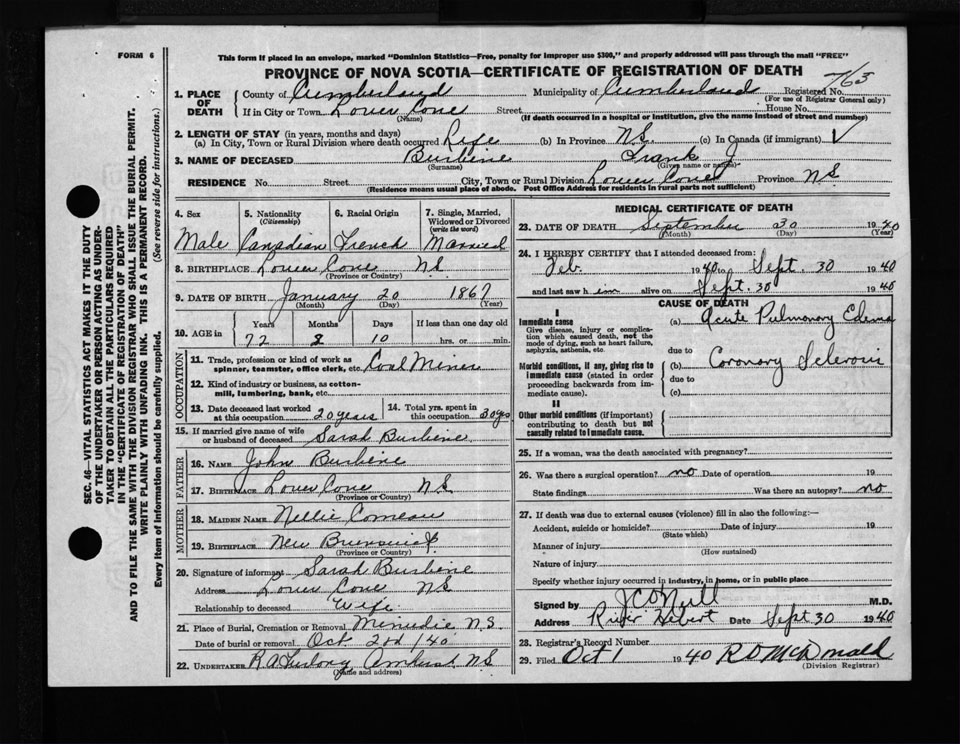 FORM 6
This form if placed in an envelope, marked "Dominion Statistics—Free, penalty for improper use $300," and properly addressed will pass through the mail "FREE"
PROVINCE OF NOVA SCOTIA—CERTIFICATE OF REGISTRATION OF DEATH
763
1. PLACE OF DEATH County of Cumberland Municipality of Cumberland Registered No.
(For use of Registrar General only)
If in City or Town Lower Cove Street House No.
(Name) (If death occurred in a hospital or institution, give the name instead of street and number)
2. LENGTH OF STAY (in years, months and days)
(a) In City, Town or Rural Division where death occurred Life (b) In Province N.S. (c) In Canada (if immigrant)
3. NAME OF DECEASED Burbine Frank J
(Surname) (Given name or names)
RESIDENCE No. Street City, Town or Rural Division Lower Cove Province N S
(Residence means usual place of abode. Post Office Address for residents in rural parts not sufficient)
SEC. 46—VITAL STATISTICS ACT MAKES IT THE DUTY
OF THE UNDERTAKER OR PERSON ACTING AS UNDER-
TAKER TO OBTAIN ALL THE PARTICULARS REQUIRED
IN THE "CERTIFICATE OF REGISTRATION OF DEATH"
AND TO FILE THE SAME WITH THE DIVISION REGISTRAR WHO SHALL ISSUE THE BURIAL PERMIT.
WRITE PLAINLY WITH UNFADING INK. THIS IS A PERMANENT RECORD.
Every item of information should be carefully supplied. (See reverse side for instructions.)
4. Sex 5. Nationality (Citizenship) 6. Racial Origin 7. Single, Married, Widowed or Divorced (write the word)
Male Canadian French Married
8. BIRTHPLACE Lower Cove N S
(Province or Country)
9. DATE OF BIRTH January 20 1867
(Month) (Day) (Year)
10. AGE in Years Months Days If less than one day old
72 8 10 hrs. or min.
OCCUPATION
11. Trade, profession or kind of work as spinner, teamster, office clerk, etc. Coal Miner
12. Kind of industry or business, as cotton-mill, lumbering, bank, etc.
13. Date deceased last worked at this occupation 20 years 14. Total yrs. spent in this occupation 30 yrs
15. If married give name of wife or husband of deceased Sarah Burbine
FATHER
16. NAME John Burbine
17. BIRTHPLACE Lower Cove N S
(Province or Country)
MOTHER
18. MAIDEN NAME Nellie Comeau
19. BIRTHPLACE New Brunswick
(Province or Country)
20. Signature of informant Sarah Burbine
Address Lower Cove N S
Relationship to deceased Wife
21. Place of Burial, Cremation or Removal Minudie N.S.
Date of burial or removal Oct 2nd / 40
22. UNDERTAKER Amherst N S
(Name and address)
MEDICAL CERTIFICATE OF DEATH
23. DATE OF DEATH September 30 1940
(Month) (Day) (Year)
24. I HEREBY CERTIFY that I attended deceased from:
Feb. 1940 to Sept. 30 1940
and last saw him alive on Sept. 30 1940
CAUSE OF DEATH
I
Immediate cause (a) Acute Pulmonary Edema
Give disease, injury or complication which caused death, not the mode of dying, such as heart failure, asphyxia, asthenia, etc.
due to
Morbid conditions, if any, giving rise to immediate cause (stated in order proceeding backwards from immediate cause). (b) Coronary Sclerosis
due to
(c)
II
Other morbid conditions (if important) contributing to death but not causally related to immediate cause.
25. If a woman, was the death associated with pregnancy?
26. Was there a surgical operation? no Date of operation 19
State findings Was there an autopsy? no
27. If death was due to external causes (violence) fill in also the following:—
Accident, suicide or homicide? Date of injury 19
(State which)
Manner of injury
(How sustained)
Nature of injury
Specify whether injury occurred in industry, in home, or in public place
Signed by M.D.
Address River Hebert Date Sept 30 1940
28. Registrar's Record Number
29. Filed Oct 1 1940 R D McDonald
(Division Registrar)